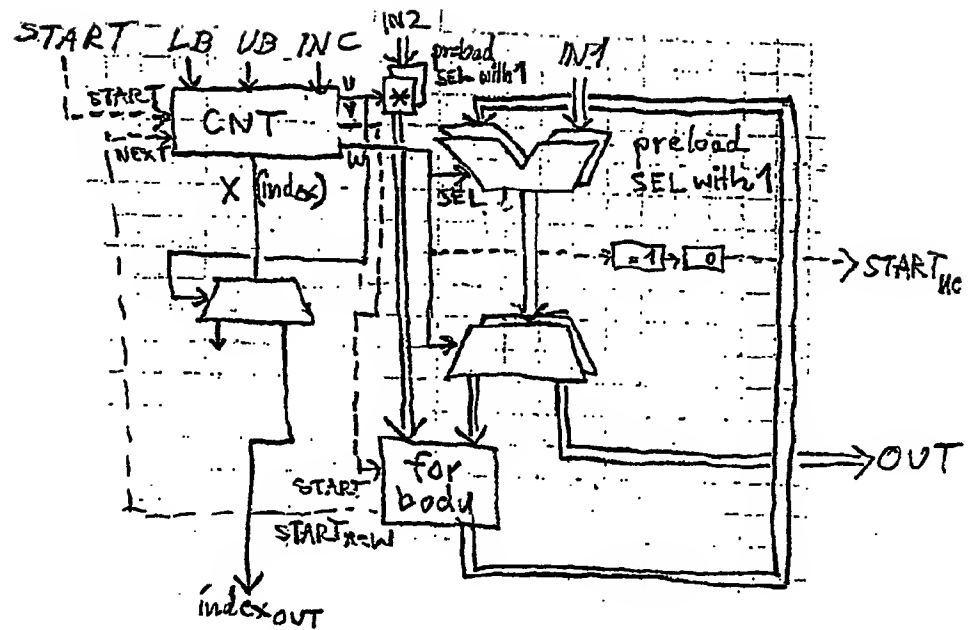 START LB UB INC
IN2
preload
SEL with 1
IN1
START
CNT
NEXT
U
V
W
*
X (index)
SEL
preload
SEL with 1
=1
0
START
for
body
OUT
START
index OUT